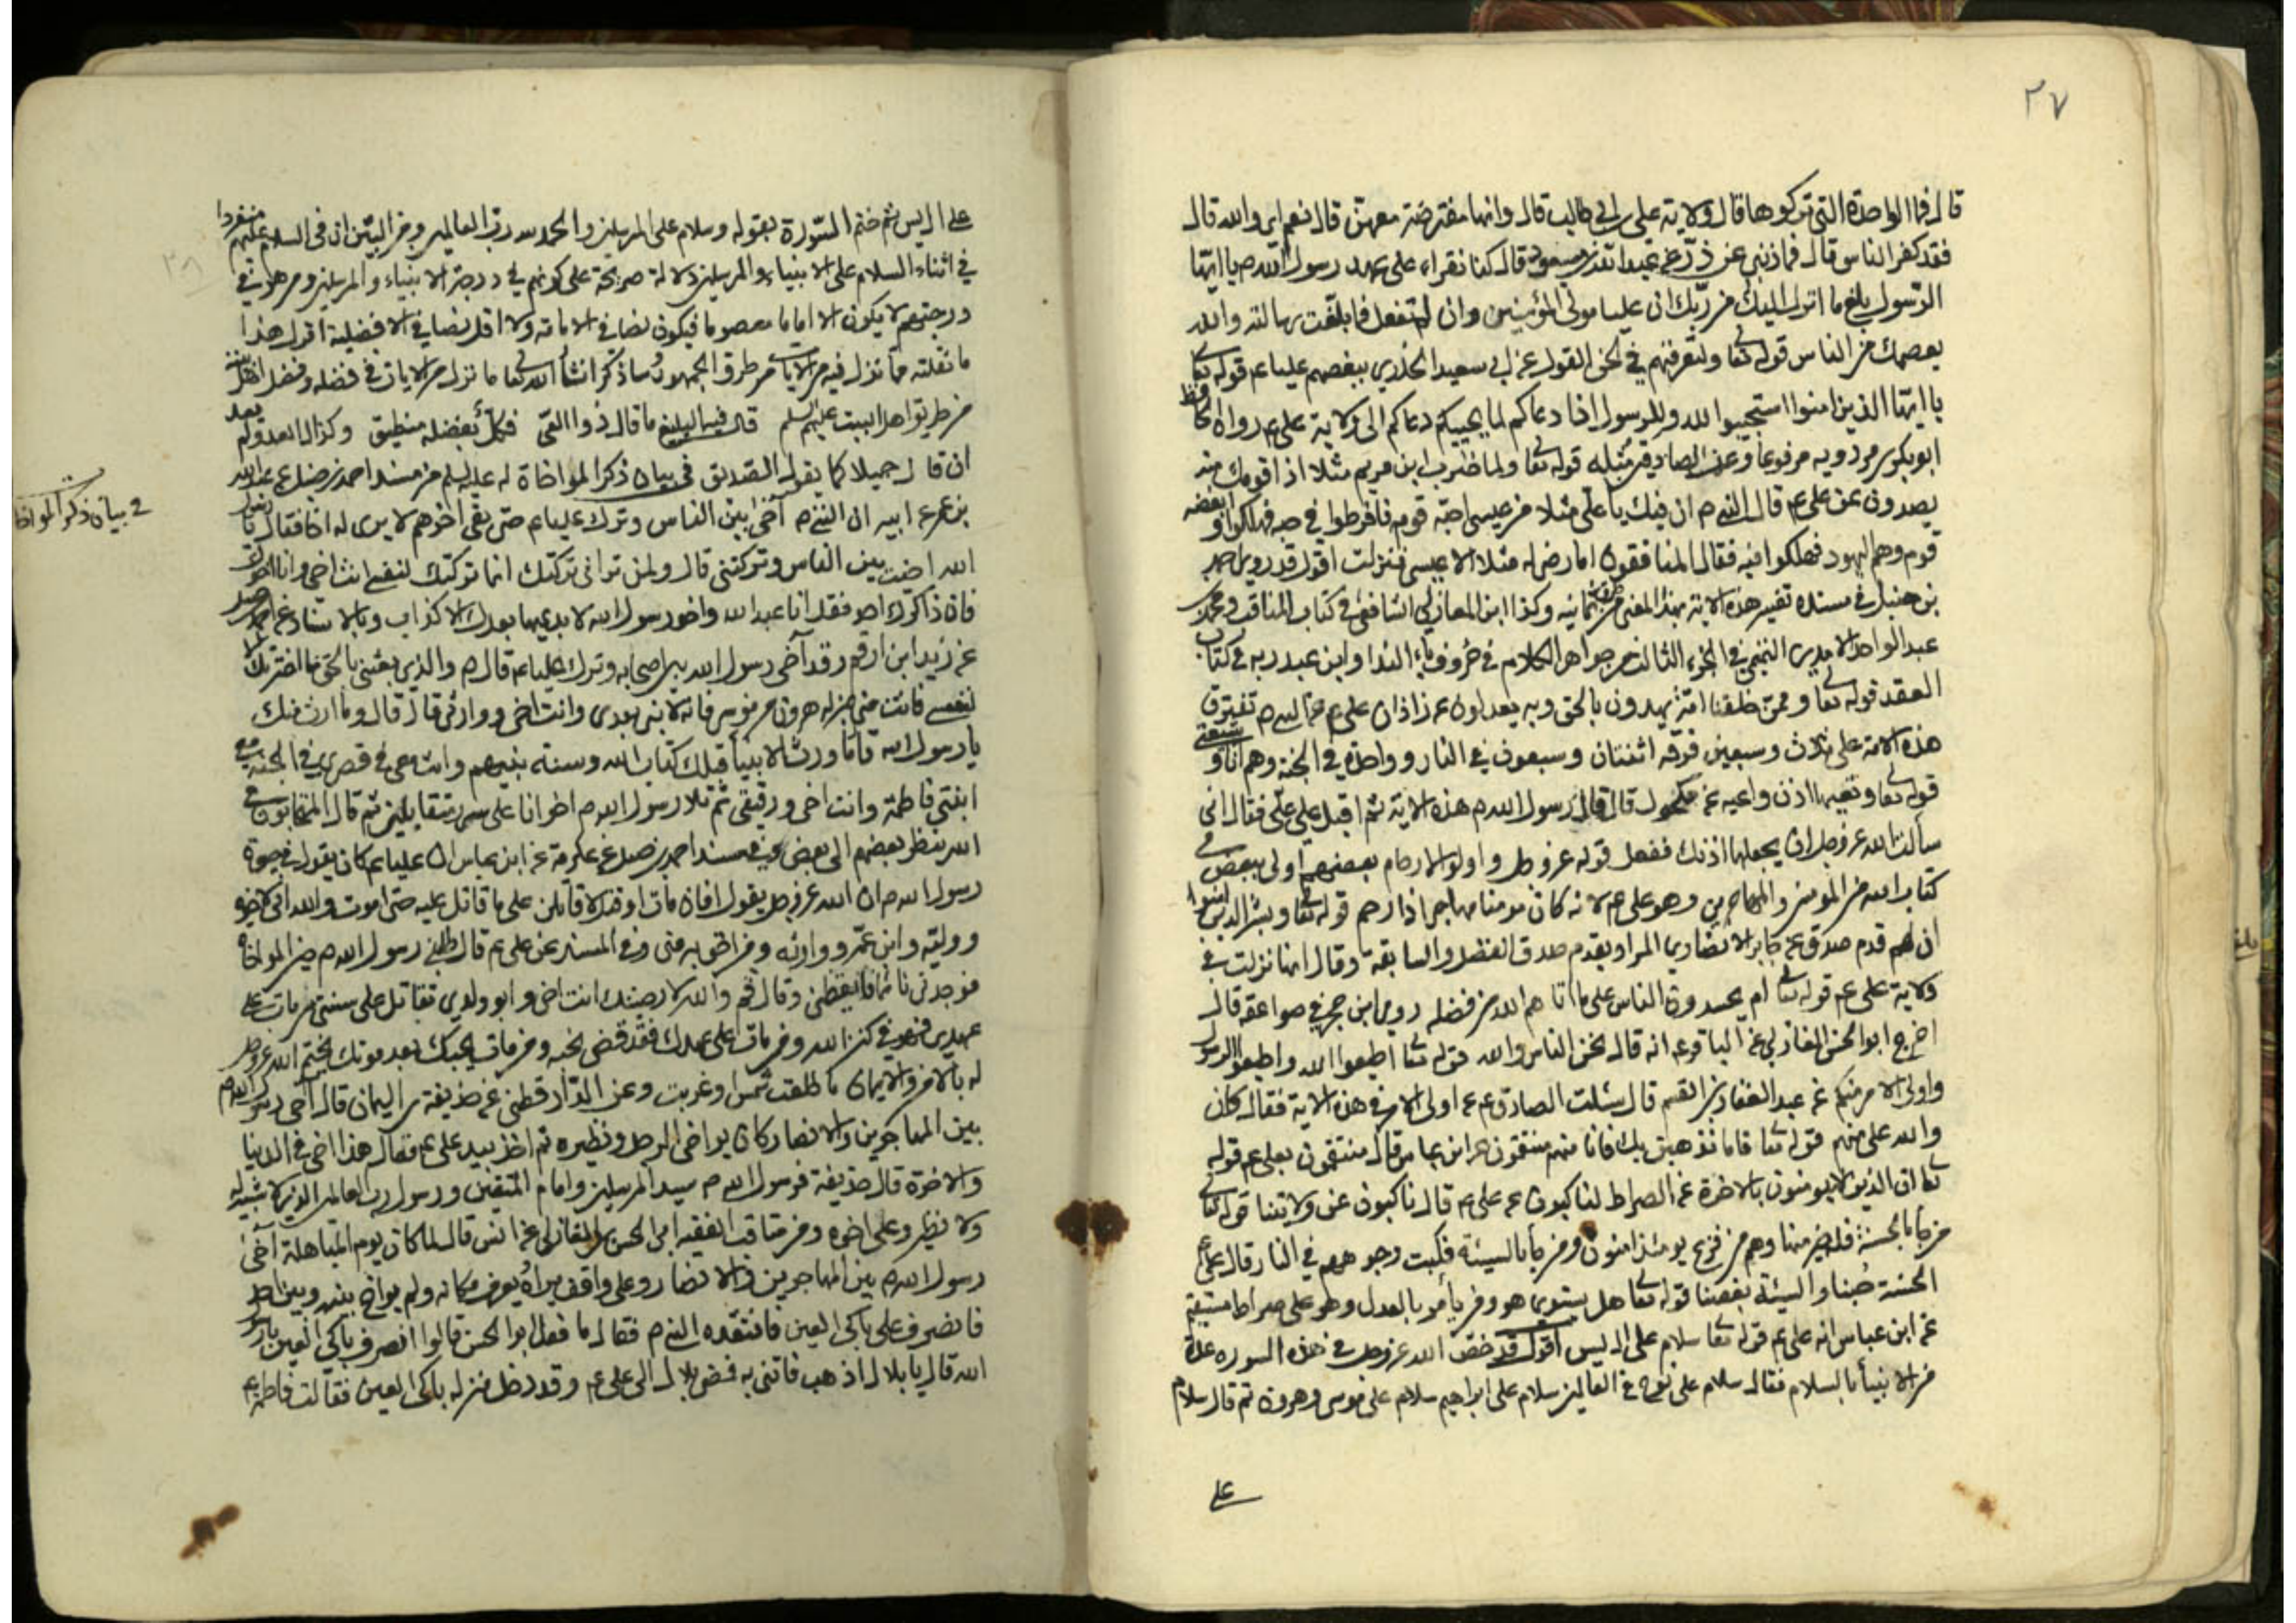 ٢٧
قال فما الواحدة التي تركوها قال ولاية علي بن ابي طالب قال وانها مفترضة معهن قال نعم اي والله قال
فقد كفر الناس قال فما ذنبي عن ذر عن عبد الله بن مسعود قال كنا نقراء على عهد رسول الله ص يا ايها
الرسول بلغ ما انزل اليك من ربك ان عليا مولى المؤمنين وان لم تفعل فما بلغت رسالته والله
يعصمك من الناس قوله تعا ولتعرفنهم في لحن القول عن ابي سعيد الخدري ببغضهم عليا ع قوله تعا
يا ايها الذين امنوا استجيبوا لله وللرسول اذا دعاكم لما يحييكم دعاكم الى ولاية علي ع رواه الحافظ
ابو بكر بن مردويه مرفوعا وعن الصادق مثله قوله تعا ولما ضرب ابن مريم مثلا اذا قومك منه
يصدون عن علي ع قال النبي ص ان فيك يا علي مثلا من عيسى احبه قوم فافرطوا في حبه فهلكوا وابغضه
قوم وهم اليهود فهلكوا فيه فقال المنافقون اما رضي له مثلا الا عيسى فنزلت اقول قد روى احمد
بن حنبل في مسنده تفسير هذه الاية بهذا المعنى من طرق ثمانية وكذا ابن المغازلي الشافعي في كتاب المناقب ومحمد بن
عبد الواحد الامدي التميمي في الجزء الثالث من جواهر الكلام في حروف ياء الندا وابن عبد ربه في كتاب
العقد قوله تعا وممن خلقنا امة يهدون بالحق وبه يعدلون عن زاذان عن علي ع عن النبي ص تفترق
هذه الامة على ثلاث وسبعين فرقه اثنتان وسبعون في النار وواحدة في الجنة وهم انا وشيعتي
قوله تعا وتعيها اذن واعيه عن مكحول قال قال رسول الله ص هذه الاية ثم اقبل على علي فقال اني
سألت الله عز وجل ان يجعلها اذنك ففعل قوله عز وجل واولوا الارحام بعضهم اولى ببعض في
كتاب الله من المومنين والمهاجرين وهو علي ع لانه كان مومنا مهاجرا ذا رحم قوله تعا وبشر الذين امنوا
ان لهم قدم صدق عن جابر الانصاري المراد بقدم صدق الفضل والسابقة وقال انها نزلت في
ولاية علي ع قوله تعا ام يحسدون الناس على ما اتاهم الله من فضله روى ابن حجر في صواعقه قال
اخرج ابو الحسن المغازلي عن الباقر ع انه قال نحن الناس والله قوله تعا اطيعوا الله واطيعوا الرسول
واولي الامر منكم عن عبد الغفار بن القسم قال سئلت الصادق ع عن اولي الامر في هذه الاية فقال كان
والله علي منهم قوله تعا فاما نذهبن بك فانا منهم منتقمون عن ابن عباس قال منتقمون بعلي ع قوله
تعا ان الذين لا يومنون بالاخرة عن الصراط لناكبون عن علي ع قال ناكبون عن ولايتنا قوله تعا
من جا بالحسنة فله خير منها وهم من فزع يومئذ امنون ومن جا بالسيئة فكبت وجوههم في النار قال علي ع
الحسنة حبنا والسيئة بغضنا قوله تعا هل يستوي هو ومن يأمر بالعدل وهو على صراط مستقيم
عن ابن عباس انه علي ع قوله تعا سلام على ال يس اقول قد خص الله عز وجل في هذه السورة عدة
من الانبيأ بالسلام فقال سلام على نوح في العالمين سلام على ابراهيم سلام على موسى وهرون ثم قال سلام
على
٢٨
على ال يس ثم ختم السورة بقوله وسلام على المرسلين والحمد لله رب العالمين ومن البين ان في السلام عليهم منفردا
في اثناء السلام على الانبياء والمرسلين دلالة صريحة على كونهم في درجة الانبياء والمرسلين ومن هو في
درجتهم لا يكون الا اماما معصوما فيكون نصا في الامامة ولا اقل نصا في الافضلية اقول هذا
ما نقلته مما نزل فيه من الايات من طرق الجمهور وساذكر انشأ الله تعا ما نزل من الايات في فضله وفضل اهل بيته
من طريق اهل البيت عليهم السلم قال فيه البليغ ما قال ذوا العي فكل بفضله منطيق وكذاك العدو لم يعد
ان قال جميلا كما يقوله الصديق في بيان ذكر المواخاة له عليه السلم من مسند احمد بن حنبل عن عبد الله
في بيان ذكر المواخا
بن عمر عن ابيه ان النبي ص آخى بين الناس وترك عليا ع حتى بقي اخرهم لا يرى له اخا فقال يا رسول
الله اخيت بين الناس وتركتني قال ولمن تراني تركتك انما تركتك لنفسي انت اخي وانا اخوك
فان ذاكرك احد فقل انا عبد الله واخو رسول الله لا يدعيها بعدك الا كذاب وبالاسناد عن احمد بن حنبل
عن زيد ابن ارقم وقد آخى رسول الله بين اصحابه وترك عليا ع قال ص والذي بعثني بالحق ما اخترتك الا
لنفسي فانت مني بمنزلة هرون من موسى الا انه لا نبي بعدى وانت اخي ووارثي قال قال وما ارث منك
يا رسول الله قال ما ورث الانبيأ قبلك كتاب الله وسنة نبيهم وانت معي في قصري في الجنة مع
ابنتي فاطمة وانت اخي ورفيقي ثم تلا رسول الله ص اخوانا على سرر متقابلين ثم قال المتحابون في
الله ينظر بعضهم الى بعض وفي مسند احمد بن حنبل عن عكرمة عن ابن عباس ان عليا ع كان يقول في حيوة
رسول الله ص ان الله عز وجل يقول افان مات او قتل لاقاتلن على ما قاتل عليه حتى اموت والله اني لاخوه
ووليه وابن عمه ووارثه ومن احق به منى وفي المسند عن علي ع قال طلبني رسول الله ص حين المواخاه
فوجدني نائما فايقظني وقال قم والله لارضينك انت اخي وابو ولدي تقاتل على سنتي من مات على
عهدي فهو في كنز الله ومن مات على عهدك فقد قضى نحبه ومن مات يحبك بعد موتك يختم الله عز وجل
له بالامن والايمان ما طلعت شمس او غربت وعن الدار قطني عن حذيفة بن اليمان قال آخى رسول الله ص
بين المهاجرين والانصار كان يواخي الرجل ونظيره ثم اخذ بيد علي ع فقال هذا اخي في الدنيا
والاخرة قال حذيفة فرسول الله ص سيد المرسلين وامام المتقين ورسول رب العالمين الذي لا شبيه له
ولا نظير وعلي اخوه ومن مناقب الفقيه ابى الحسن المغازلي عن انس قال لما كان يوم المباهلة آخى
رسول الله ص بين المهاجرين والانصار وعلي واقف يراه يعرف مكانه ولم يواخ بينه وبين احد
فانصرف علي باكى العين فافتقده النبي ص فقال ما فعل ابو الحسن قالوا انصرف باكى العين يا رسول
الله قال يا بلال اذهب فاتني به فمضى بلال الى علي ع وقد دخل منزله باكى العين فقالت فاطمة ع